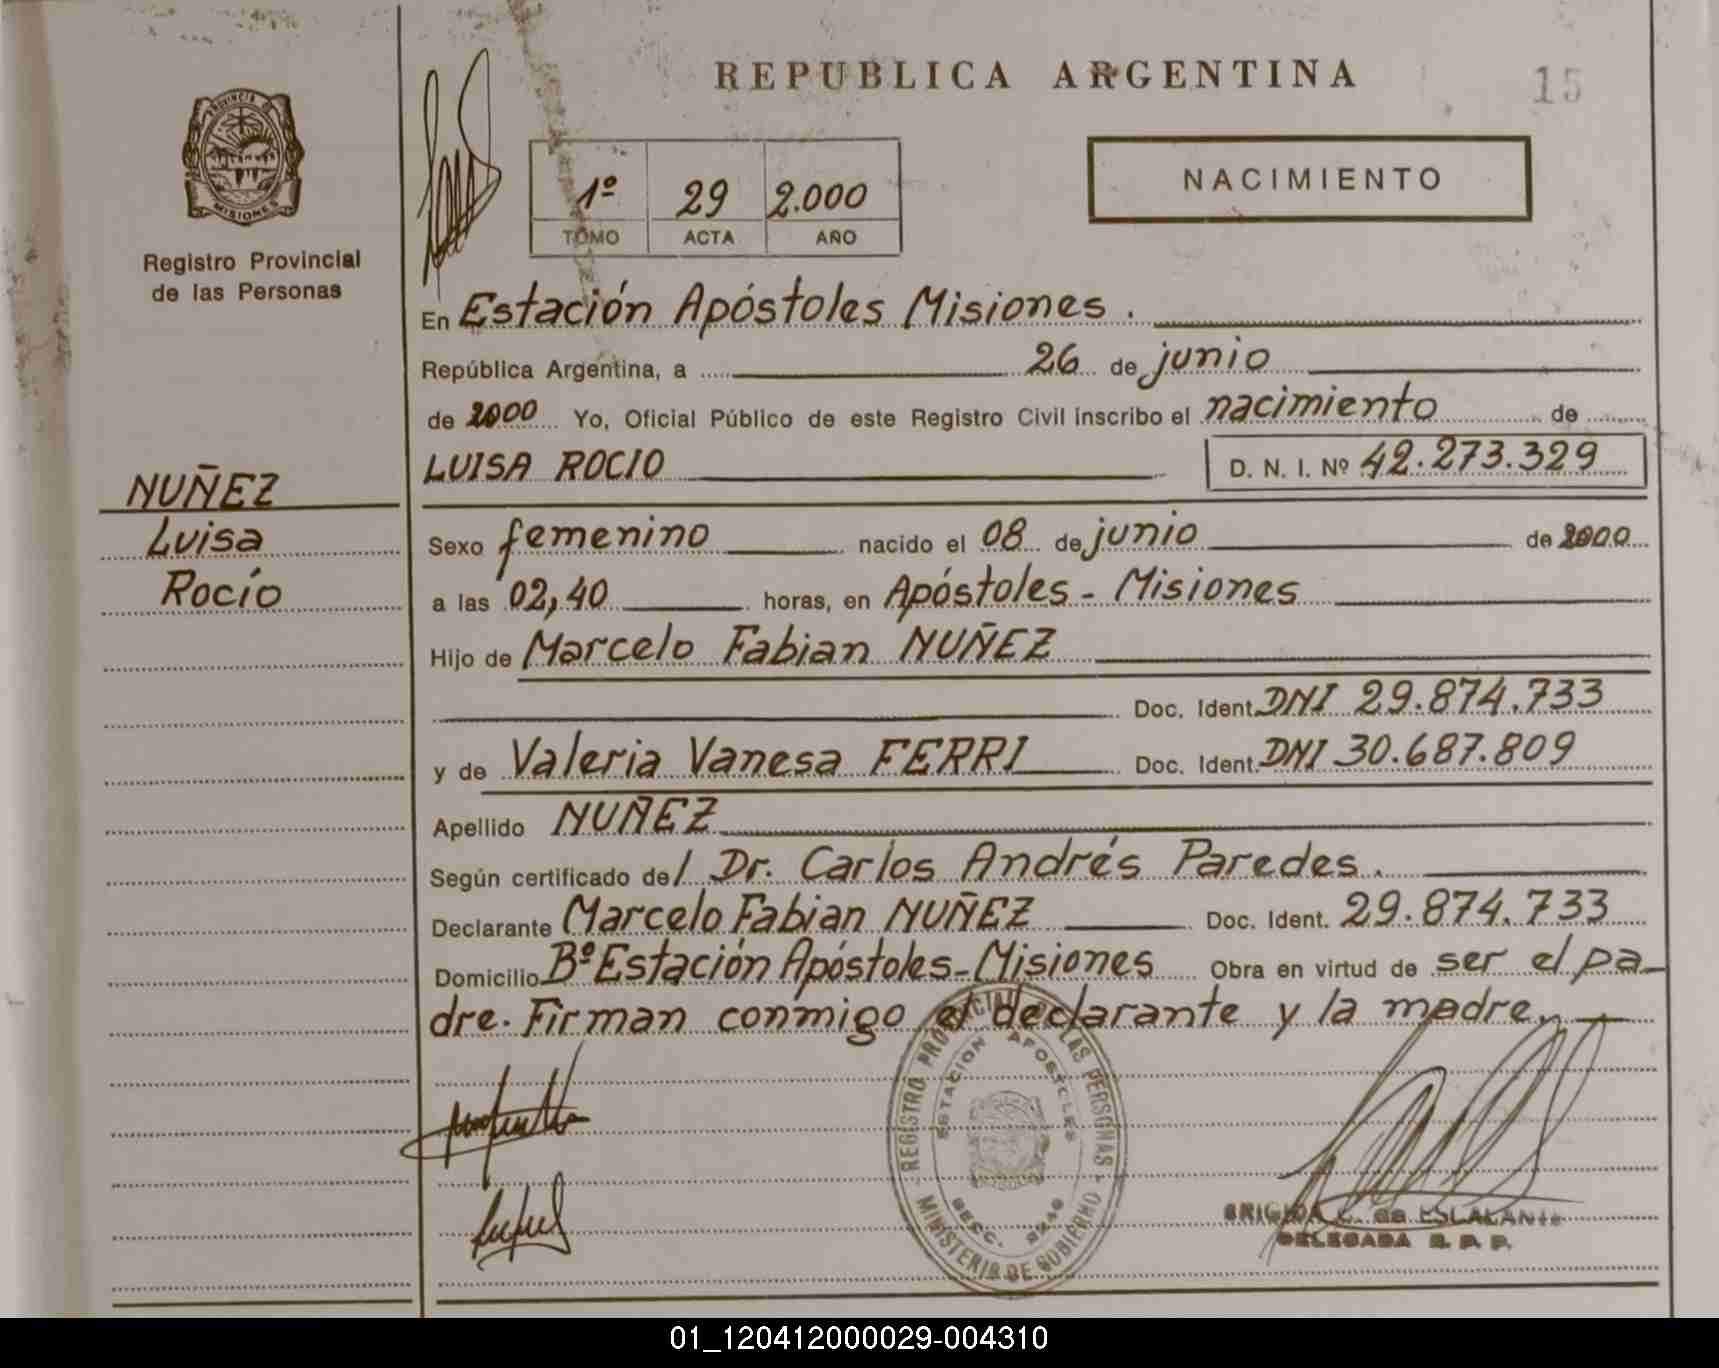 REPUBLICA ARGENTINA
15
PROVINCIA DE
MISIONES
Registro Provincial
de las Personas
NACIMIENTO
1º 29 2.000
TOMO ACTA AÑO
En Estación Apóstoles Misiones.
República Argentina, a 26 de junio
de 2000 Yo, Oficial Público de este Registro Civil inscribo el nacimiento de
LUISA ROCIO D. N. I. Nº 42.273.329
NUÑEZ
Luisa
Rocío
Sexo femenino nacido el 08 de junio de 2000
a las 02,40 horas, en Apóstoles - Misiones
Hijo de Marcelo Fabian NUÑEZ
Doc. Ident. DNI 29.874.733
y de Valeria Vanesa FERRI Doc. Ident. DNI 30.687.809
Apellido NUÑEZ
Según certificado de/ Dr. Carlos Andrés Paredes.
Declarante Marcelo Fabian NUÑEZ Doc. Ident. 29.874.733
Domicilio Bº Estación Apóstoles-Misiones Obra en virtud de ser el pa-
dre. Firman conmigo el declarante y la madre.
REGISTRO PROVINCIAL DE LAS PERSONAS
ESTACION APOSTOLES
SECC. 3240
MINISTERIO DE GOBIERNO
BRIGIDA C. de ESCALANTE
DELEGADA R. P. P.
01_120412000029-004310